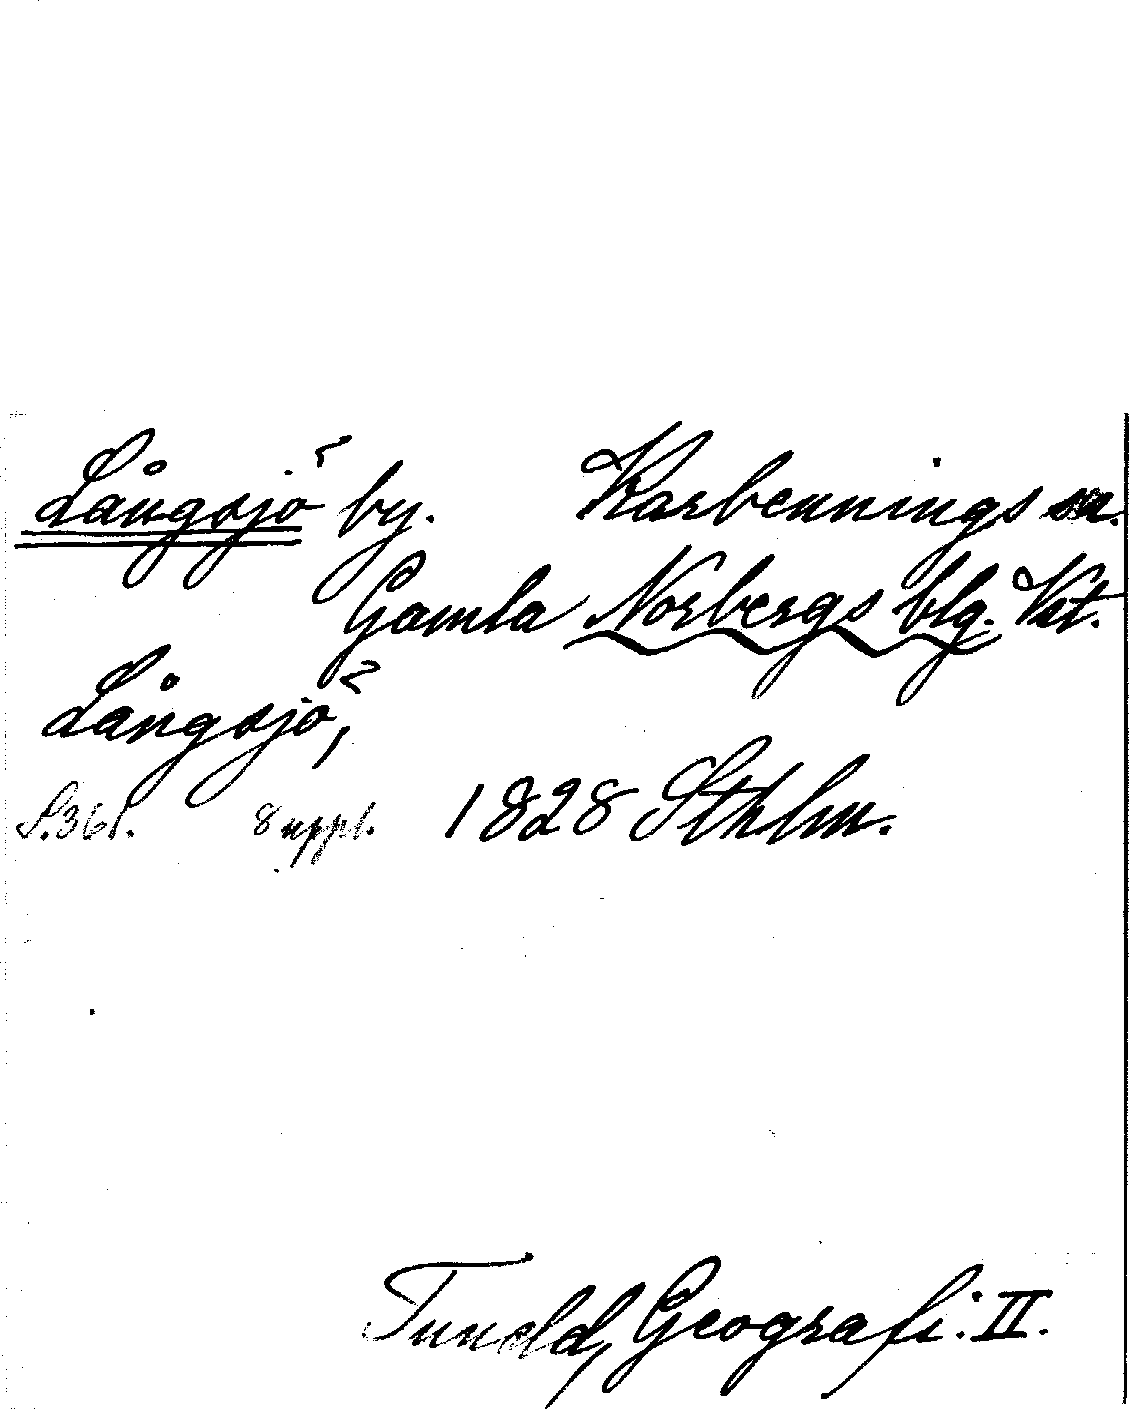 Långsjö by. Karbennings sn.
Gamla Norbergs blg. Vst.
Långsjö,
S. 361. 8 uppl. 1828 Sthlm.
Tuneld, Geografi. II.